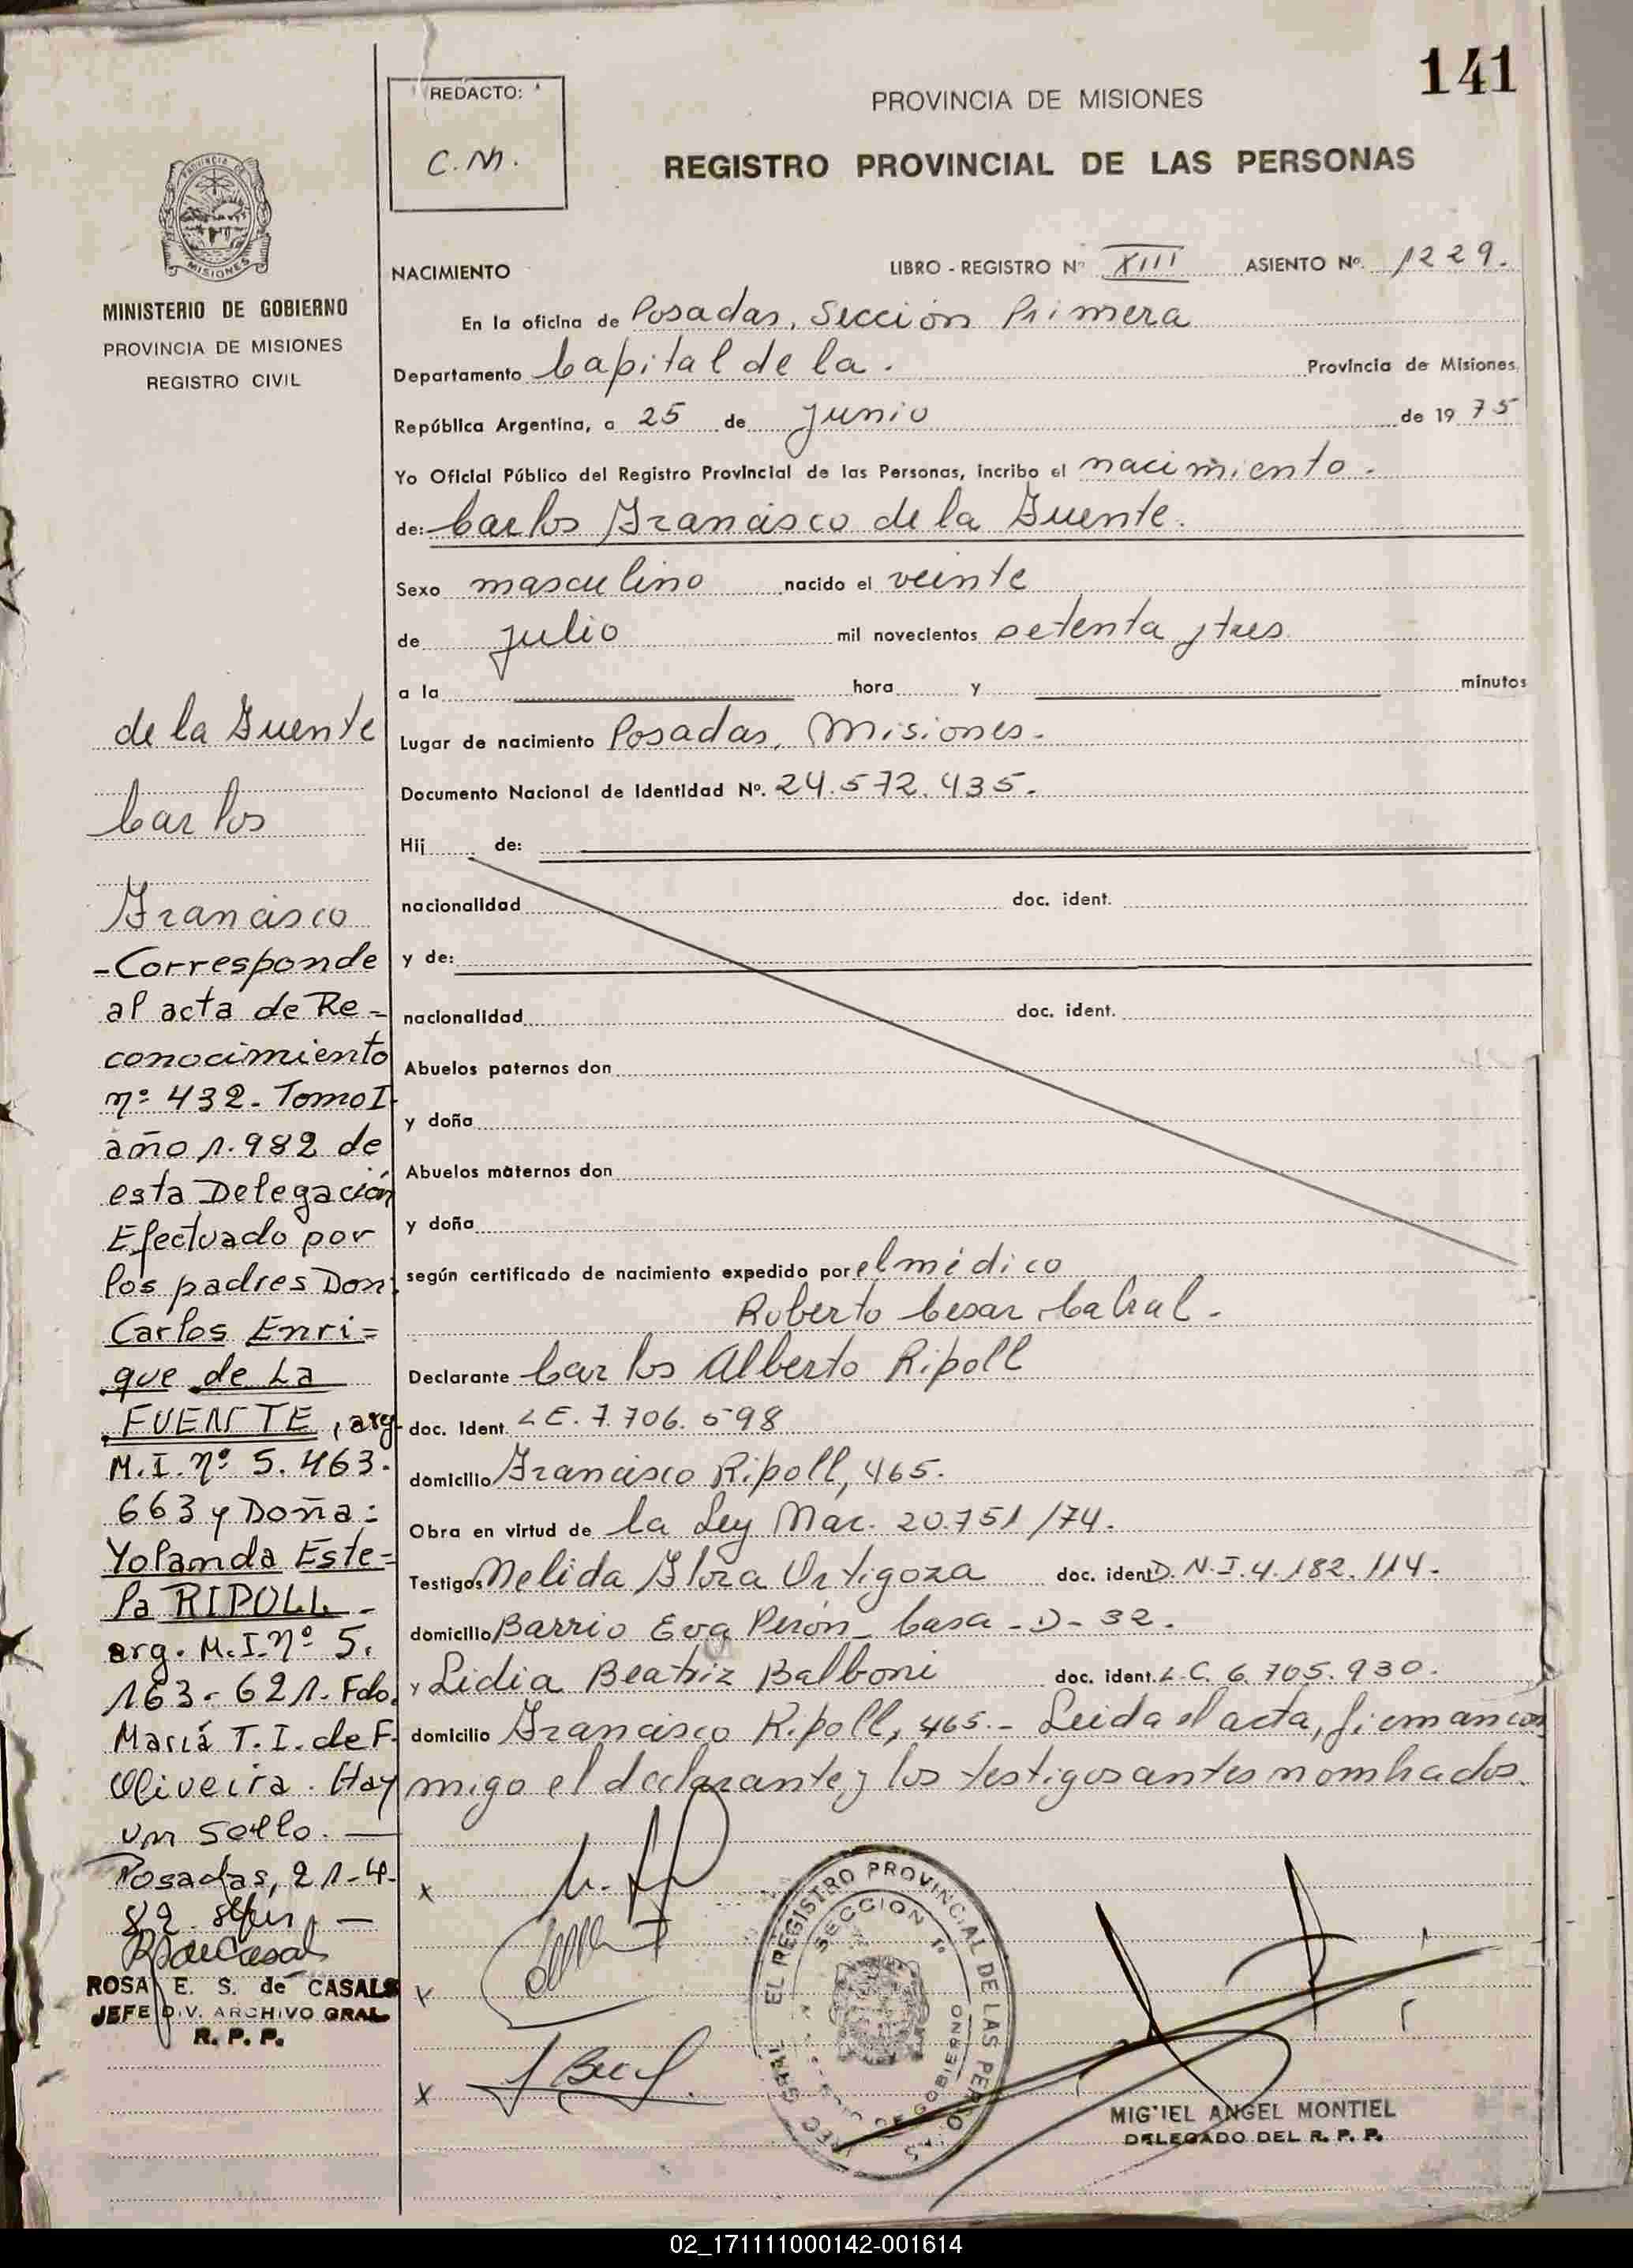 141
REDACTO:
C.M.
PROVINCIA DE MISIONES
REGISTRO PROVINCIAL DE LAS PERSONAS
PROVINCIA DE
MISIONES
MINISTERIO DE GOBIERNO
PROVINCIA DE MISIONES
REGISTRO CIVIL
NACIMIENTO
LIBRO - REGISTRO Nº XIII ASIENTO Nº. 1229.
En la oficina de Posadas, Sección Primera
Departamento Capital de la. Provincia de Misiones,
República Argentina, a 25 de Junio de 1975
Yo Oficial Público del Registro Provincial de las Personas, incribo el nacimiento.
de: Carlos Francisco de la Fuente.
Sexo masculino nacido el veinte
de julio mil novecientos setenta y tres
a la hora y minutos
Lugar de nacimiento Posadas, Misiones.
Documento Nacional de Identidad Nº. 24.572.435.
Hij de:
nacionalidad doc. ident.
y de:
nacionalidad doc. ident.
Abuelos paternos don
y doña
Abuelos maternos don
y doña
según certificado de nacimiento expedido por el médico
Roberto Cesar Cabral.
Declarante Carlos Alberto Ripoll
doc. Ident. L E. 7.706.598
domicilio Francisco Ripoll, 465.
Obra en virtud de la Ley Nac. 20.751/74.
Testigos Nelida Flora Ortigoza doc. ident D.N.I. 4.182.114.
domicilio Barrio Eva Perón - Casa - D - 32.
y Lidia Beatriz Balboni doc. ident. L.C. 6.705.930.
domicilio Francisco Ripoll, 465.- Leida el acta, firman con
migo el declarante y los testigos antes nombrados.
x
x
x
de la Fuente
Carlos
Francisco
-Corresponde
al acta de Re=
conocimiento
nº 432. Tomo I.
año 1.982 de
esta Delegación
Efectuado por
los padres Don:
Carlos Enri=
que de La
FUENTE, arg.
M.I. nº 5.463.
663 y Doña:
Yolanda Este=
la RIPOLL -
arg. M.I. nº 5.
163-621. Fdo.
Mariá T. I. de F.
Oliveira. Hay
un sello. —
Posadas, 21-4-
82.
ROSA E. S. de CASALS
JEFE DIV. ARCHIVO GRAL.
R. P. P.
EL REGISTRO PROVINCIAL DE LAS PERSONAS
SECCION 1º
GOBIERNO
MIGUEL ANGEL MONTIEL
DELEGADO DEL R. P. P.
02_171111000142-001614